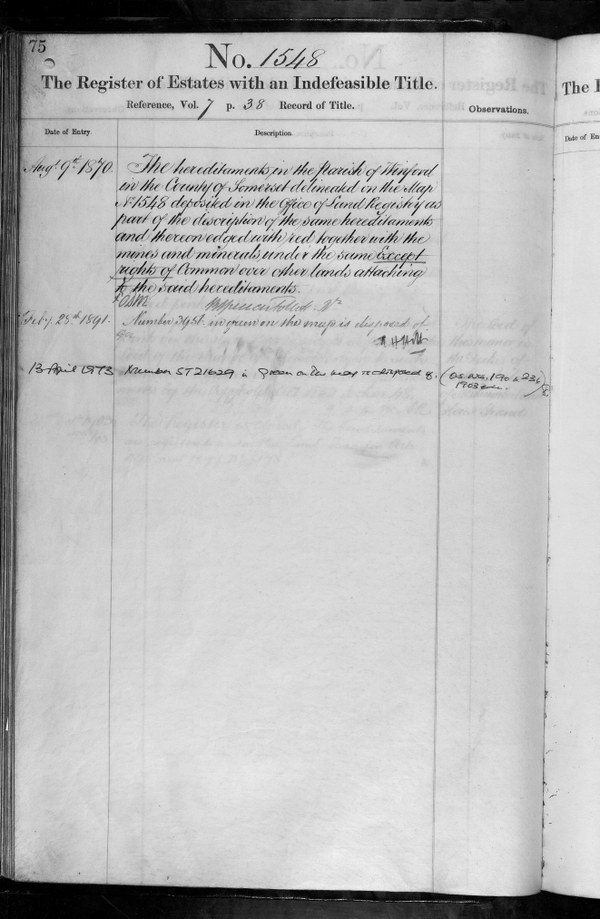 75
No. 1548
The Register of Estates with an Indefeasible Title.
Reference, Vol. 7 p. 38 Record of Title.
Observations.
Date of Entry
Description.
Augt 9th 1870.
The hereditaments in the Parish of Winford
in the County of Somerset delineated on the Map
No 1548 deposited in the Office of Land Registry as
part of the description of the same hereditaments
and thereon edged with red together with the
mines and minerals under the same Except
rights of Common over other lands attaching
to the said hereditaments.
Feby 28th 1891.
Number 3951 in green on the map is disposed of
13 April 1973
Number ST21629 in green on the map is disposed of.
(O.S. Nos. 190 & 236
1903 edn.)
The
Date of En